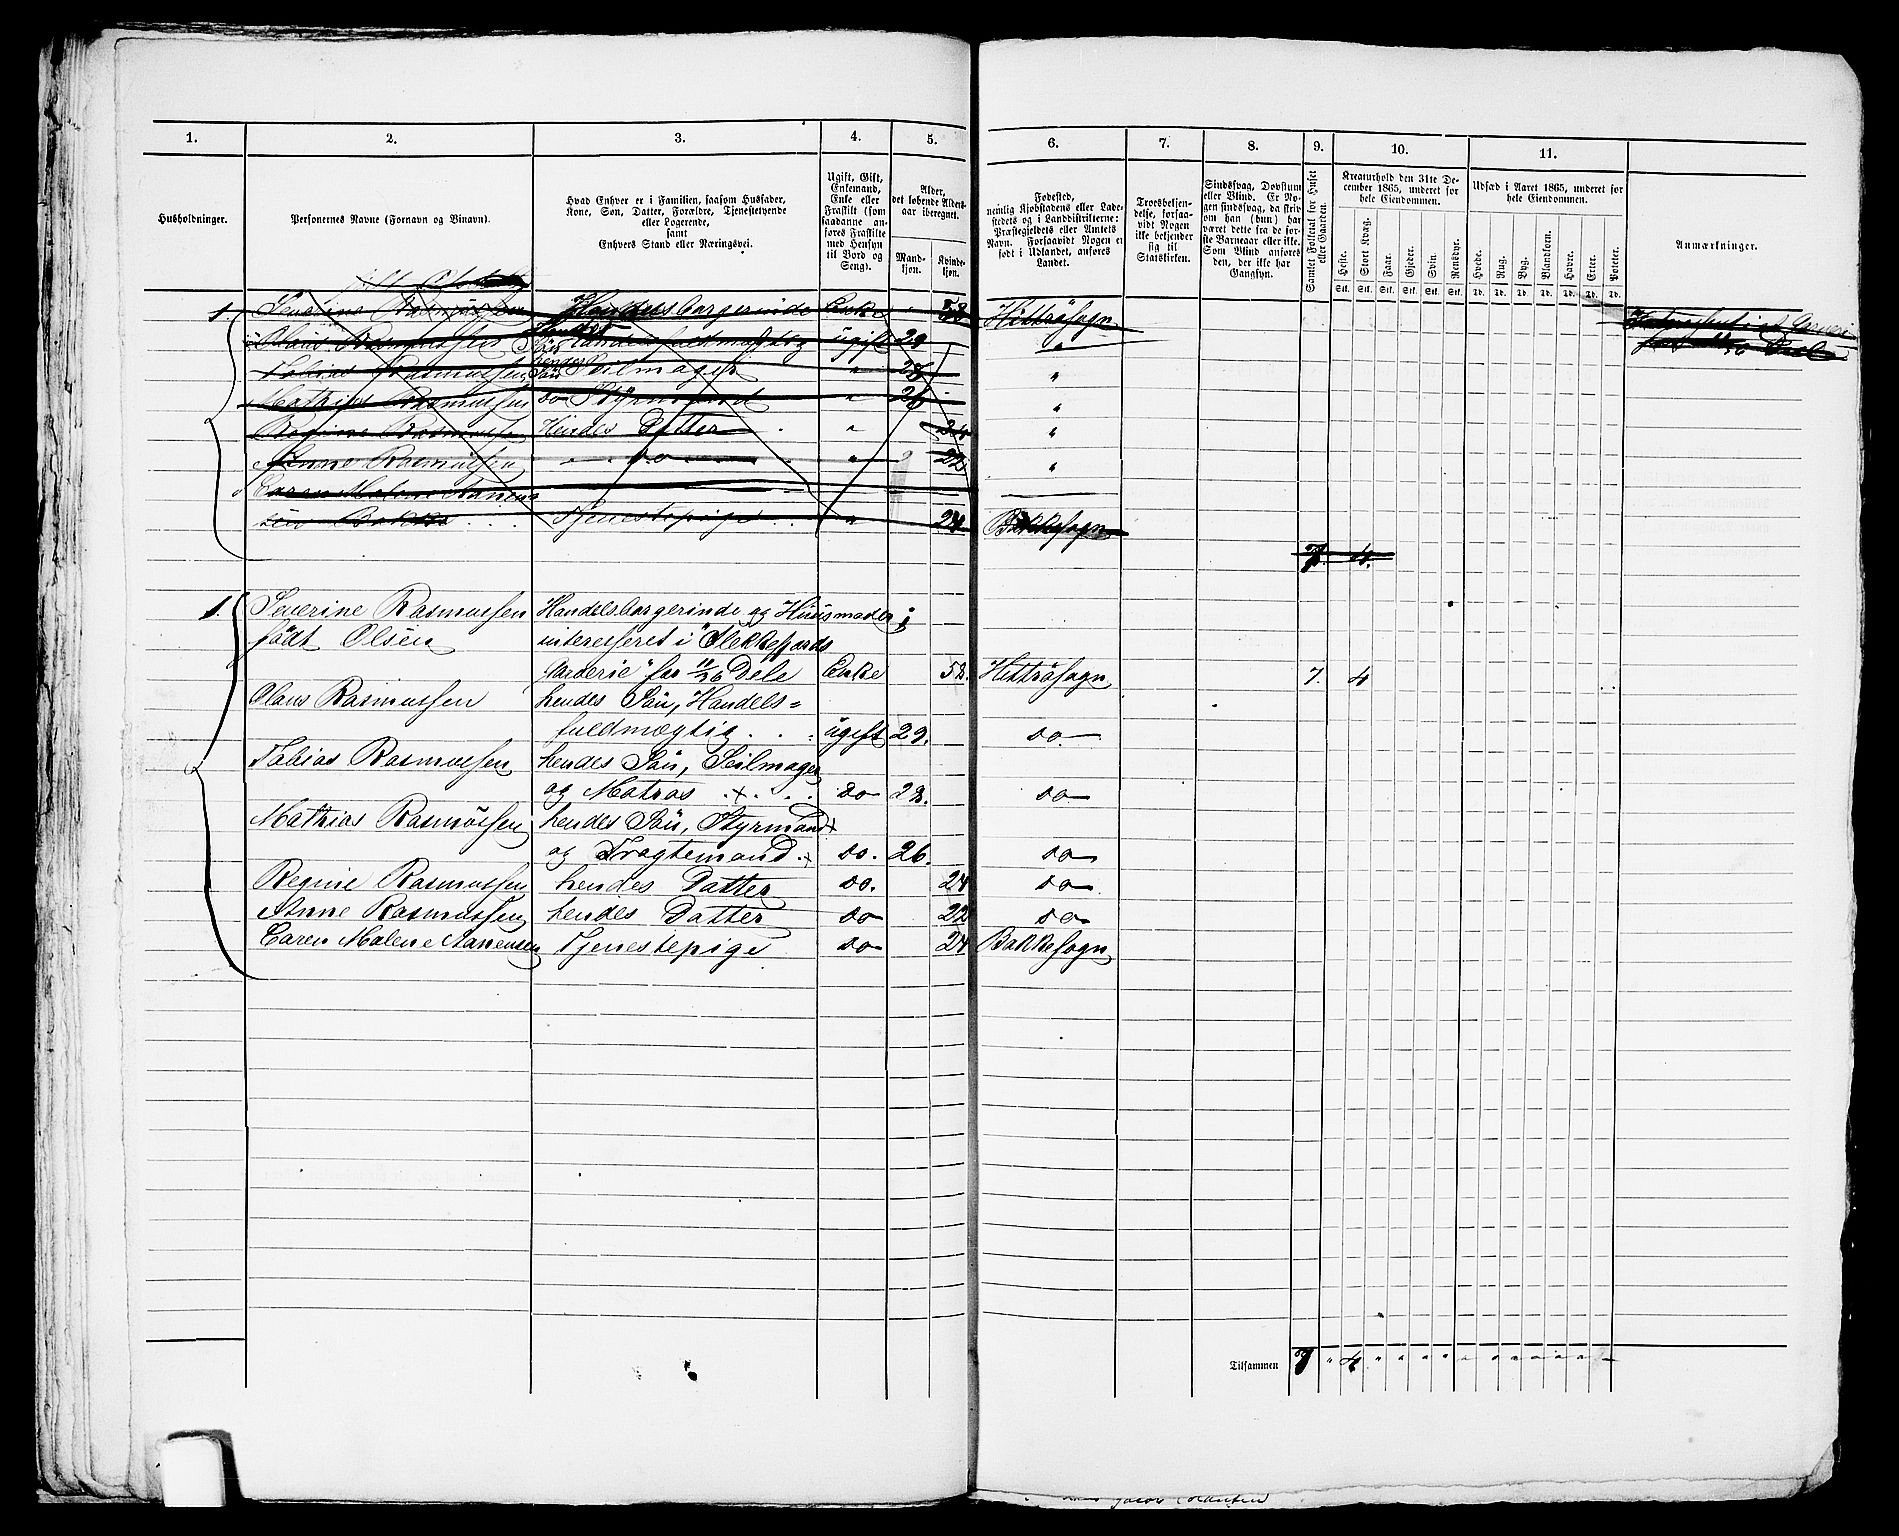 1. 2. 3. 4. 5. 6. 7. 8. 9. 10. 11.
Husholdninger.
Personernes Navne (Fornavn og Binavn).
Hvad Enhver er i Familien, saasom Husfader,
Kone, Søn, Datter, Forældre, Tjenestetyende
eller Logerende,
samt
Enhvers Stand eller Næringsvei.
Ugift, Gift,
Enkemand,
Enke eller
Fraskilt (som
saadanne an-
føres Fraskilte
med Hensyn
til Bord og
Seng).
Alder,
det løbende Alders-
aar iberegnet.
Mand-
kjøn.
Kvinde-
kjøn.
Fødested,
nemlig Kjøbstadens eller Lade-
stedets og i Landdistrikterne:
Præstegjeldets eller Amtets
Navn. Forsaavidt Nogen er
født i Udlandet, anføres
Landet.
Troesbekjen-
delse, forsaa-
vidt Nogen
ikke bekjender
sig til
Statskirken.
Sindssvag, Døvstum
eller Blind. Er No-
gen sindssvag, da skriv
om han (hun) har
været dette fra de før-
ste Barneaar eller ikke.
Som Blind anføres
den, der ikke har
Gangsyn.
Samlet Folketal for Huset
eller Gaarden.
Kreaturhold den 31te De-
cember 1865, underet for
hele Eiendommen.
Heste. Stort Kvæg. Faar. Gjeder. Svin. Rensdyr.
Stk. Stk. Stk. Stk. Stk. Stk.
Udsæd i Aaret 1865, underet for
hele Eiendommen.
Hvede. Rug. Byg. Blandkorn. Havre. Erter. Poteter.
Td. Td. Td. Td. Td. Td. Td.
Anmærkninger.
1. Severine Rasmussen Handelsborgerinde Enke " 58 Hitterösogn
Olaus Rasmussen Handelsfuldmægtig ugift 29 "
Tobias Rasmussen Seilmager " 28 "
Mathias Rasmussen do Styrmand " 26 "
Regine Rasmussen Hendes Datter " 24 "
Anne Rasmussen " do " 22 "
Caren Malene Aanen-
sen Bakke Tjenestepige " 24 Bakkesogn
7. 4.
1. Severine Rasmussen Handelsborgerinde og Huusmoder;
födt Olsen interesseret i "Flekkefjords
Garderie" for 11/36 Dele Enke 58. Hitterösogn 7. 4
Olaus Rasmussen hendes Sön, Handels=
fuldmægtig ugift 29. do
Tobias Rasmussen hendes Sön, Seilmager
og Matros do 28. do
Mathias Rasmussen hendes Sön, Styrmand
og Fragtemand do. 26. do
Regine Rasmussen hendes Datter do. 24 do
Anne Rasmussen hendes Datter do 22 do
Caren Malene Aanensen Tjenestepige do 24 Bakkesogn
Tilsammen 7 " 4 " " " " " " " " " "